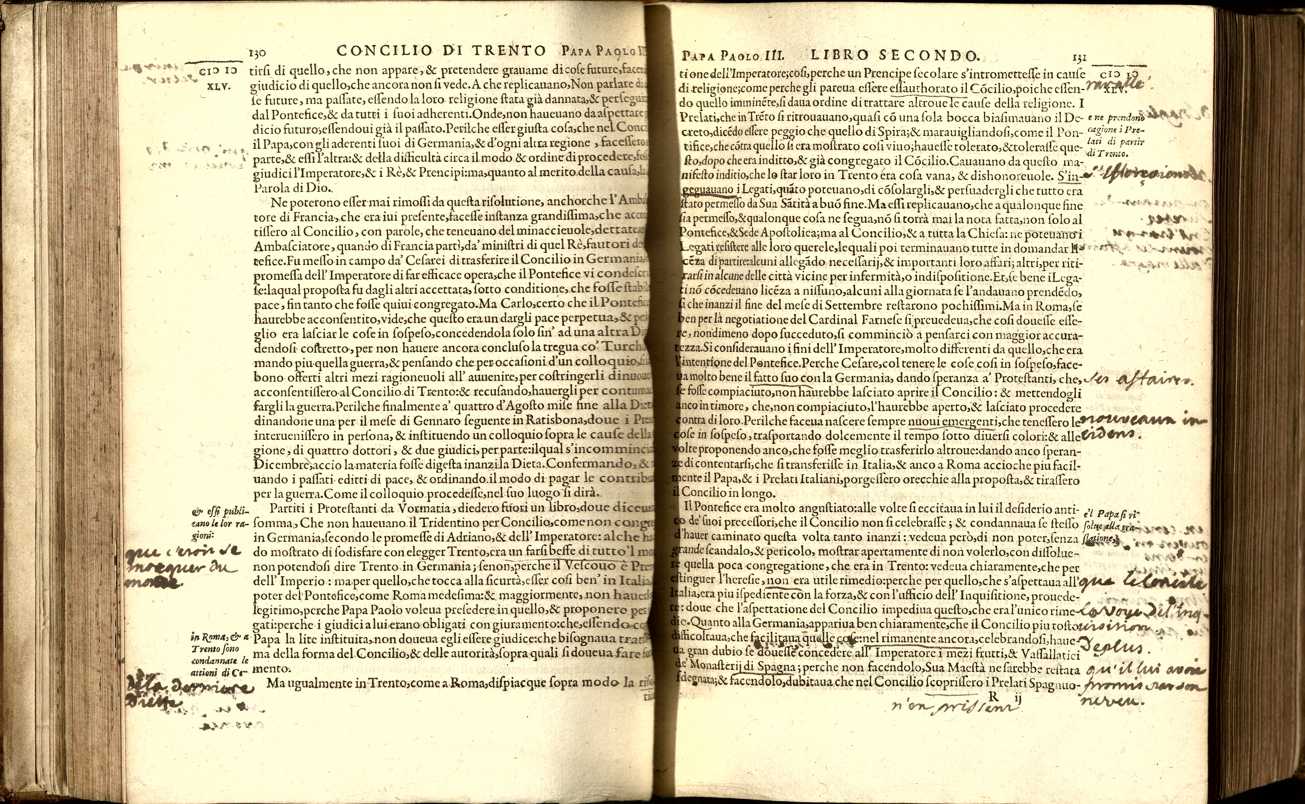 130 CONCILIO DI TRENTO PAPA PAOLO
CIↃ IↃ
XLV.
tirsi di quello, che non appare, & pretendere grauame di cose future, facen
giudicio di quello, che ancora non si vede. A che replicauano, Non parlare di
se future, ma passate, essendo la loro religione stata già dannata, & persegui
dal Pontefice, & da tutti i suoi adherenti. Onde, non haueuano da aspettare
dicio futuro, essendoui già il passato. Perilche esser giusta cosa, che nel Conci
il Papa, con gli aderenti suoi di Germania, & d'ogni altra regione, facessero
parte, & essi l'altra: & della difficultà circa il modo & ordine di procedere, fos
giudici l'Imperatore, & i Rè, & Prencipi: ma, quanto al merito della causa,
Parola di Dio.
Ne poterono esser mai rimossi da questa risolutione, anchorche l'Amba
tore di Francia, che era iui presente, facesse instanza grandissima, che accon
tissero al Concilio, con parole, che teneuano del minacceuole, dettate
Ambasciatore, quando di Francia partì, da' ministri di quel Rè, fautori
tefice. Fu messo in campo da' Cesarei di trasferire il Concilio in Germania,
promessa dell' Imperatore di far efficace opera, che il Pontefice vi condesce
se: laqual proposta fu dagli altri accettata, sotto conditione, che fosse stabi
pace, fin tanto che fosse quiui congregato. Ma Carlo, certo che il Pontefice
haurebbe acconsentito, vide, che questo era un dargli pace perpetua, &
glio era lasciar le cose in sospeso, concedendola solo sin' ad una altra Di
dendosi costretto, per non hauere ancora concluso la tregua co' Turchi
mando più quella guerra, & pensando che per occasioni d'un colloquio,
bono offerti altri mezi ragioneuoli all' auuenire, per costringerli di nuouo
acconsentissero al Concilio di Trento: & recusando, hauergli per contuma
fargli la guerra. Perilche finalmente a' quattro d'Agosto mise fine alla Dieta
dinandone una per il mese di Gennaro seguente in Ratisbona, doue i Pren
interuenissero in persona, & instituendo un colloquio sopra le cause della
gione, di quattro dottori, & due giudici, per parte: ilqual s'incomminci
Dicembre, accio la materia fosse digesta inanzi la Dieta. Confermando, &
uando i passati editti di pace, & ordinando il modo di pagar le contribu
per la guerra. Come il colloquio procedesse, nel suo luogo si dirà.
& essi publi-
cano le lor ra-
gioni:
Partiti i Protestanti da Vormatia, diedero fuori un libro, doue diceua
somma, Che non haueuano il Tridentino per Concilio, come non congre
in Germania, secondo le promesse di Adriano, & dell' Imperatore: alche ha
do mostrato di sodisfare con elegger Trento, era un farsi beffe di tutto 'l mo
non potendosi dire Trento in Germania; senon, perche il Vescouo è Pre
dell' Imperio: ma per quello, che tocca alla sicurtà, esser così ben' in Italia,
poter del Pontefice, come Roma medesima: & maggiormente, non haue
legitimo, perche Papa Paolo voleua presedere in quello, & proponere per
gati: perche i giudici a lui erano obligati con giuramento: che, essendo co
Papa la lite instituita, non doueua egli essere giudice: che bisognaua trat
ma della forma del Concilio, & delle autorità, sopra quali si doueua fare
mento.
que c'eroit se
mocquer du
monde
in Roma; & a
Trento sono
condannate le
attioni di Ce-
Ma ugualmente in Trento, come a Roma, dispiacque sopra modo la
de la derniere
Diette
PAPA PAOLO III. LIBRO SECONDO. 131
CIↃ IↃ
XLV.
tione dell'Imperatore; così, perche un Prencipe secolare s'intromettesse in cause
di religione; come perche gli pareua essere essauthorato il Cōcilio, poiche essen-
do quello imminēre, si daua ordine di trattare altroue le cause della religione. I
Prelati, che in Trēto si ritrouauano, quasi cō una sola bocca biasimauano il De-
creto, dicēdo essere peggio che quello di Spira; & marauigliandosi, come il Pon-
tifice, che cōtra quello si era mostrato così viuo, hauesse tolerato, & tolerasse que-
sto, dopo che era inditto, & già congregato il Cōcilio. Cauauano da questo ma-
nifesto inditio, che lo star loro in Trento era cosa vana, & dishonoreuole. S'in-
gegnauano i Legati, quāto poteuano, di cōsolargli, & persuadergli che tutto era
stato permesso da Sua Sātità a buō fine. Ma essi replicauano, che a qualonque fine
sia permesso, & qualonque cosa ne segua, nō si torrà mai la nota fatta, non solo al
Pontefice, & Sede Apostolica; ma al Concilio, & a tutta la Chiesa: ne poteuano i
Legati resistere alle loro querele, lequali poi terminauano tutte in domandar li-
cēza di partire: alcuni allegādo necessarij, & importanti loro affari; altri, per riti-
rarsi in alcune delle città vicine per infermità, o indispositione. Et, se bene i Lega-
ti nō cōcedeuano licēza a nissuno, alcuni alla giornata se l'andauano prendēdo,
sì che inanzi il fine del mese di Settembre restarono pochissimi. Ma in Roma, se
ben per là negotiatione del Cardinal Farnese si preuedeua, che così douesse esse-
re, nondimeno dopo succeduto, si comminciò a pensarci con maggior accura-
tezza. Si considerauano i fini dell' Imperatore, molto differenti da quello, che era
l'intentione del Pontefice. Perche Cesare, col tenere le cose così in sospeso, face-
ua molto bene il fatto suo con la Germania, dando speranza a' Protestanti, che,
se fosse compiaciuto, non haurebbe lasciato aprire il Concilio: & mettendogli
anco in timore, che, non compiaciuto, l'haurebbe aperto, & lasciato procedere
contra di loro. Perilche faceua nascere sempre nuoui emergenti, che tenessero le
cose in sospeso, trasportando dolcemente il tempo sotto diuersi colori: & alle
volte proponendo anco, che fosse meglio trasferirlo altroue: dando anco speran-
ze di contentarsi, che si transferisse in Italia, & anco a Roma accioche piu facil-
mente il Papa, & i Prelati Italiani, porgessero orecchie alla proposta, & tirassero
il Concilio in longo.
e ne prendono
cagione i Pre-
lati di partir
di Trento.
ravallé
s'efforçoient
ses affaires.
nouveaux in
cidens.
e'l Papa si ri
solue alla tra-
slatione.
Il Pontefice era molto angustiato: alle volte si eccitaua in lui il desiderio anti-
co de' suoi precessori, che il Concilio non si celebrasse; & condannaua se stesso
d'hauer caminato questa volta tanto inanzi: vedeua però, di non poter, senza
grande scandalo, & pericolo, mostrar apertamente di non volerlo, con dissolue-
re quella poca congregatione, che era in Trento: vedeua chiaramente, che per
estinguer l'heresie, non era utile rimedio: perche per quello, che s'aspettaua all'
Italia, era piu ispediente con la forza, & con l'ufficio dell' Inquisitione, prouede-
re: doue che l'aspettatione del Concilio impediua questo, che era l'unico rime-
dio. Quanto alla Germania, appariua ben chiaramente, che il Concilio piu tosto
difficoltaua, che facilitaua quelle cose: nel rimanente ancora, celebrandosi, haue-
ua gran dubio se douesse concedere all' Imperatore i mezi frutti, & Vassallatici
de' Monasterij di Spagna; perche non facendolo, Sua Maestà ne sarebbe restata
sdegnata; & facendolo, dubitaua che nel Concilio scoprissero i Prelati Spagnuo-
que le Concile
La voye de l'Inq-
uisition
De plus.
qu'il lui avoit
promis par son
neveu.
R ij
n'en prissent